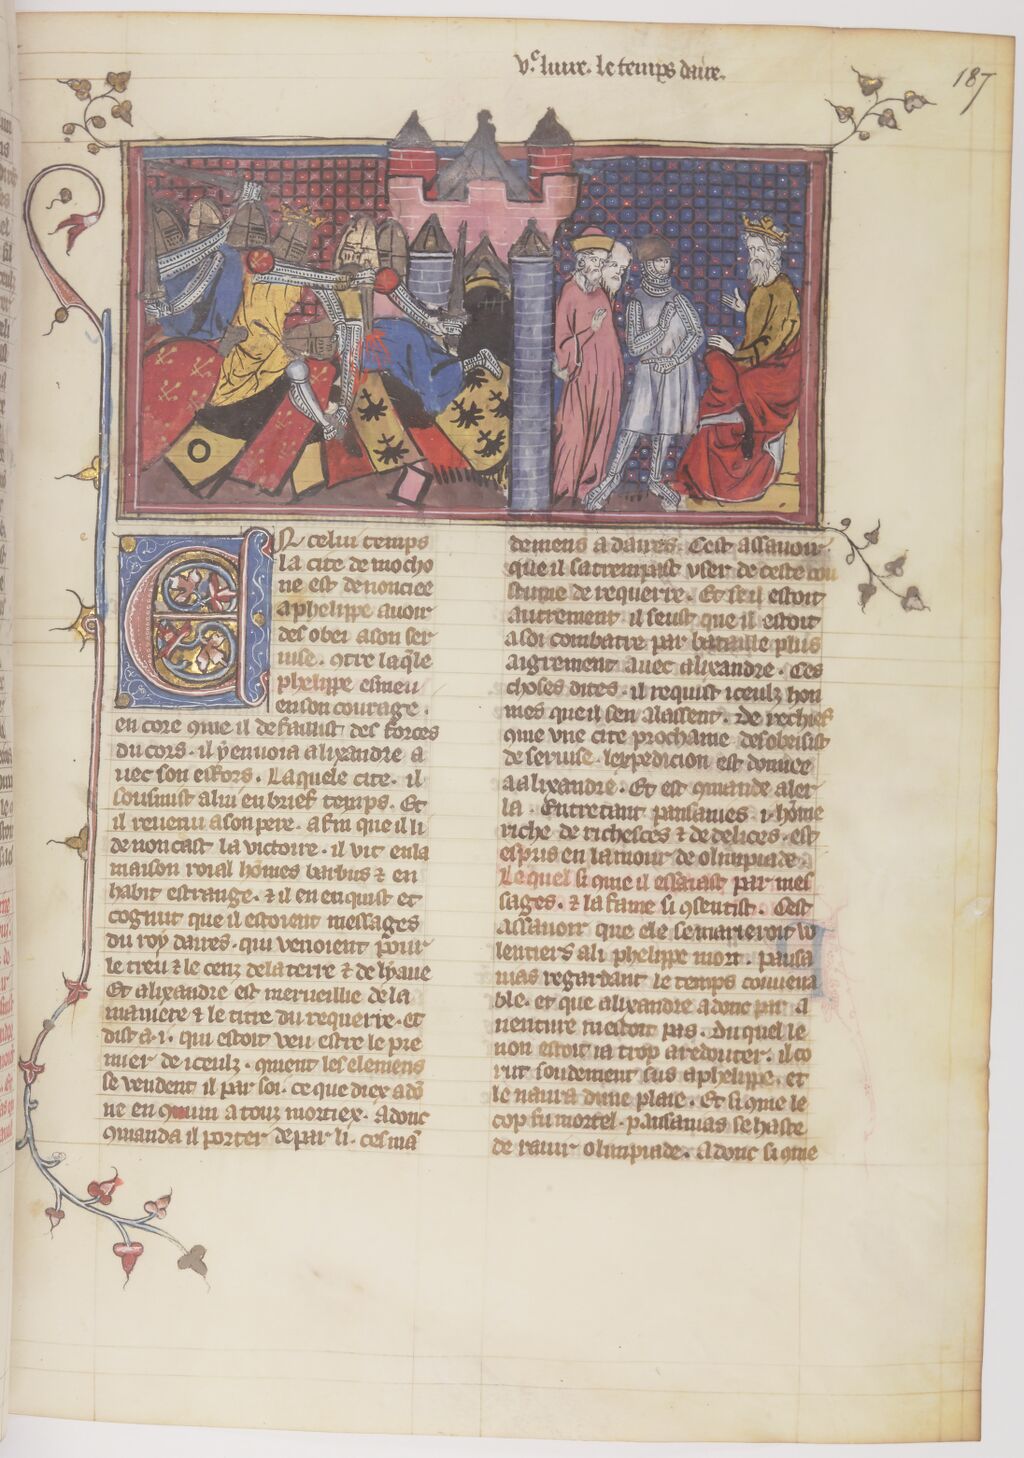 v.e liure. le temps daire.
187
En celui temps
la cite de mocho
ne est denonciee
a phelippe auoir
des obei a son ser
uise. 9tre laq̃le
phelippe esmeu
en son courage.
en core 9me il defausist des forces
du cors. il y enuoia alixandre a
uec son effors. Laquele cite. il
sousmist a lui en brief temps. Et
il reuenu a son pere. a fin que il li
denoncast la victoire. il vit en la
maison roial hõmes barbus ⁊ en
habit estrange. ⁊ il en enquist et
cognut que il estoient messages
du roy daires. qui venoient pour
le treu ⁊ le cens de la terre ⁊ de lyaue
Et alixandre est merueillie de la
maniere ⁊ le titre du requerre. et
dist a .i. qui estoit veu estre le pre
mier de iceulz. 9ment les elemens
se vendent il par soi. ce que diex a dõ
ne en 9mun a touz mortiex. Adonc
9manda il porter de par li. ces mã
demens a daires. Cest assauoir
que il satrempast vser de ceste cou
stume de requerre. Et se il estoit
autrement. il seust que il estoit
a soi combatre par bataille plus
aigrement auec alixandre. Ces
choses dites. il requist iceulz hom
mes que il sen alassent. De rechief
9me vne cite prochaine desobeisist
de seruise. lexpedicion est donnee
a alixandre. Et est 9mande aler
la. Entretant pausanies .i. hõme
riche de richesces ⁊ de delices. est
espris en lamour de olimpiade.
Lequel si 9me il essaiast par mes
sages. ⁊ la fame si 9sentist. Cest
assauoir que ele se marieroit vo
lentiers a li phelippe mort. pausa
nias regardant le temps conuena
ble. et que alixandre adonc par a
uenture niestoit pas. Duquel le
non estoit ia trop a redouter. il co
rut soudement sus a phelippe. et
le naura dune plaie. Et si 9me le
cop fu mortel. pausanias se haste
de rauir olimpiade. Adonc si 9me